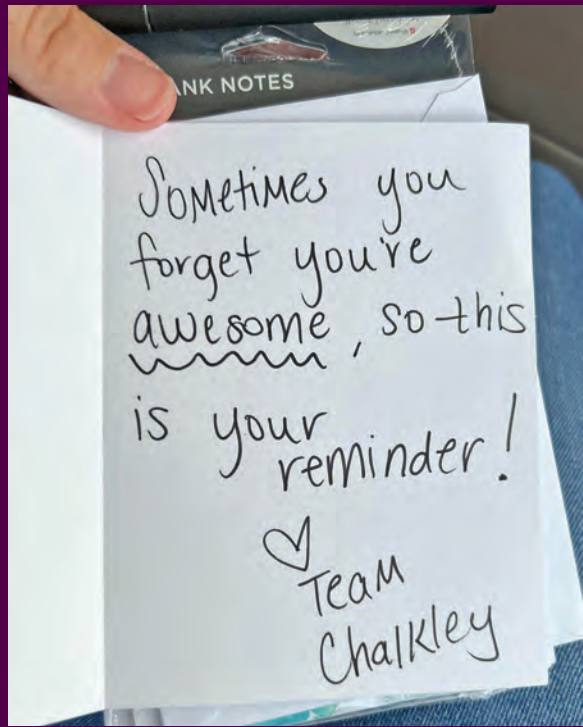 ANK NOTES
Sometimes you
forget you're
awesome, so this
is your
reminder!
Team
Chalkley